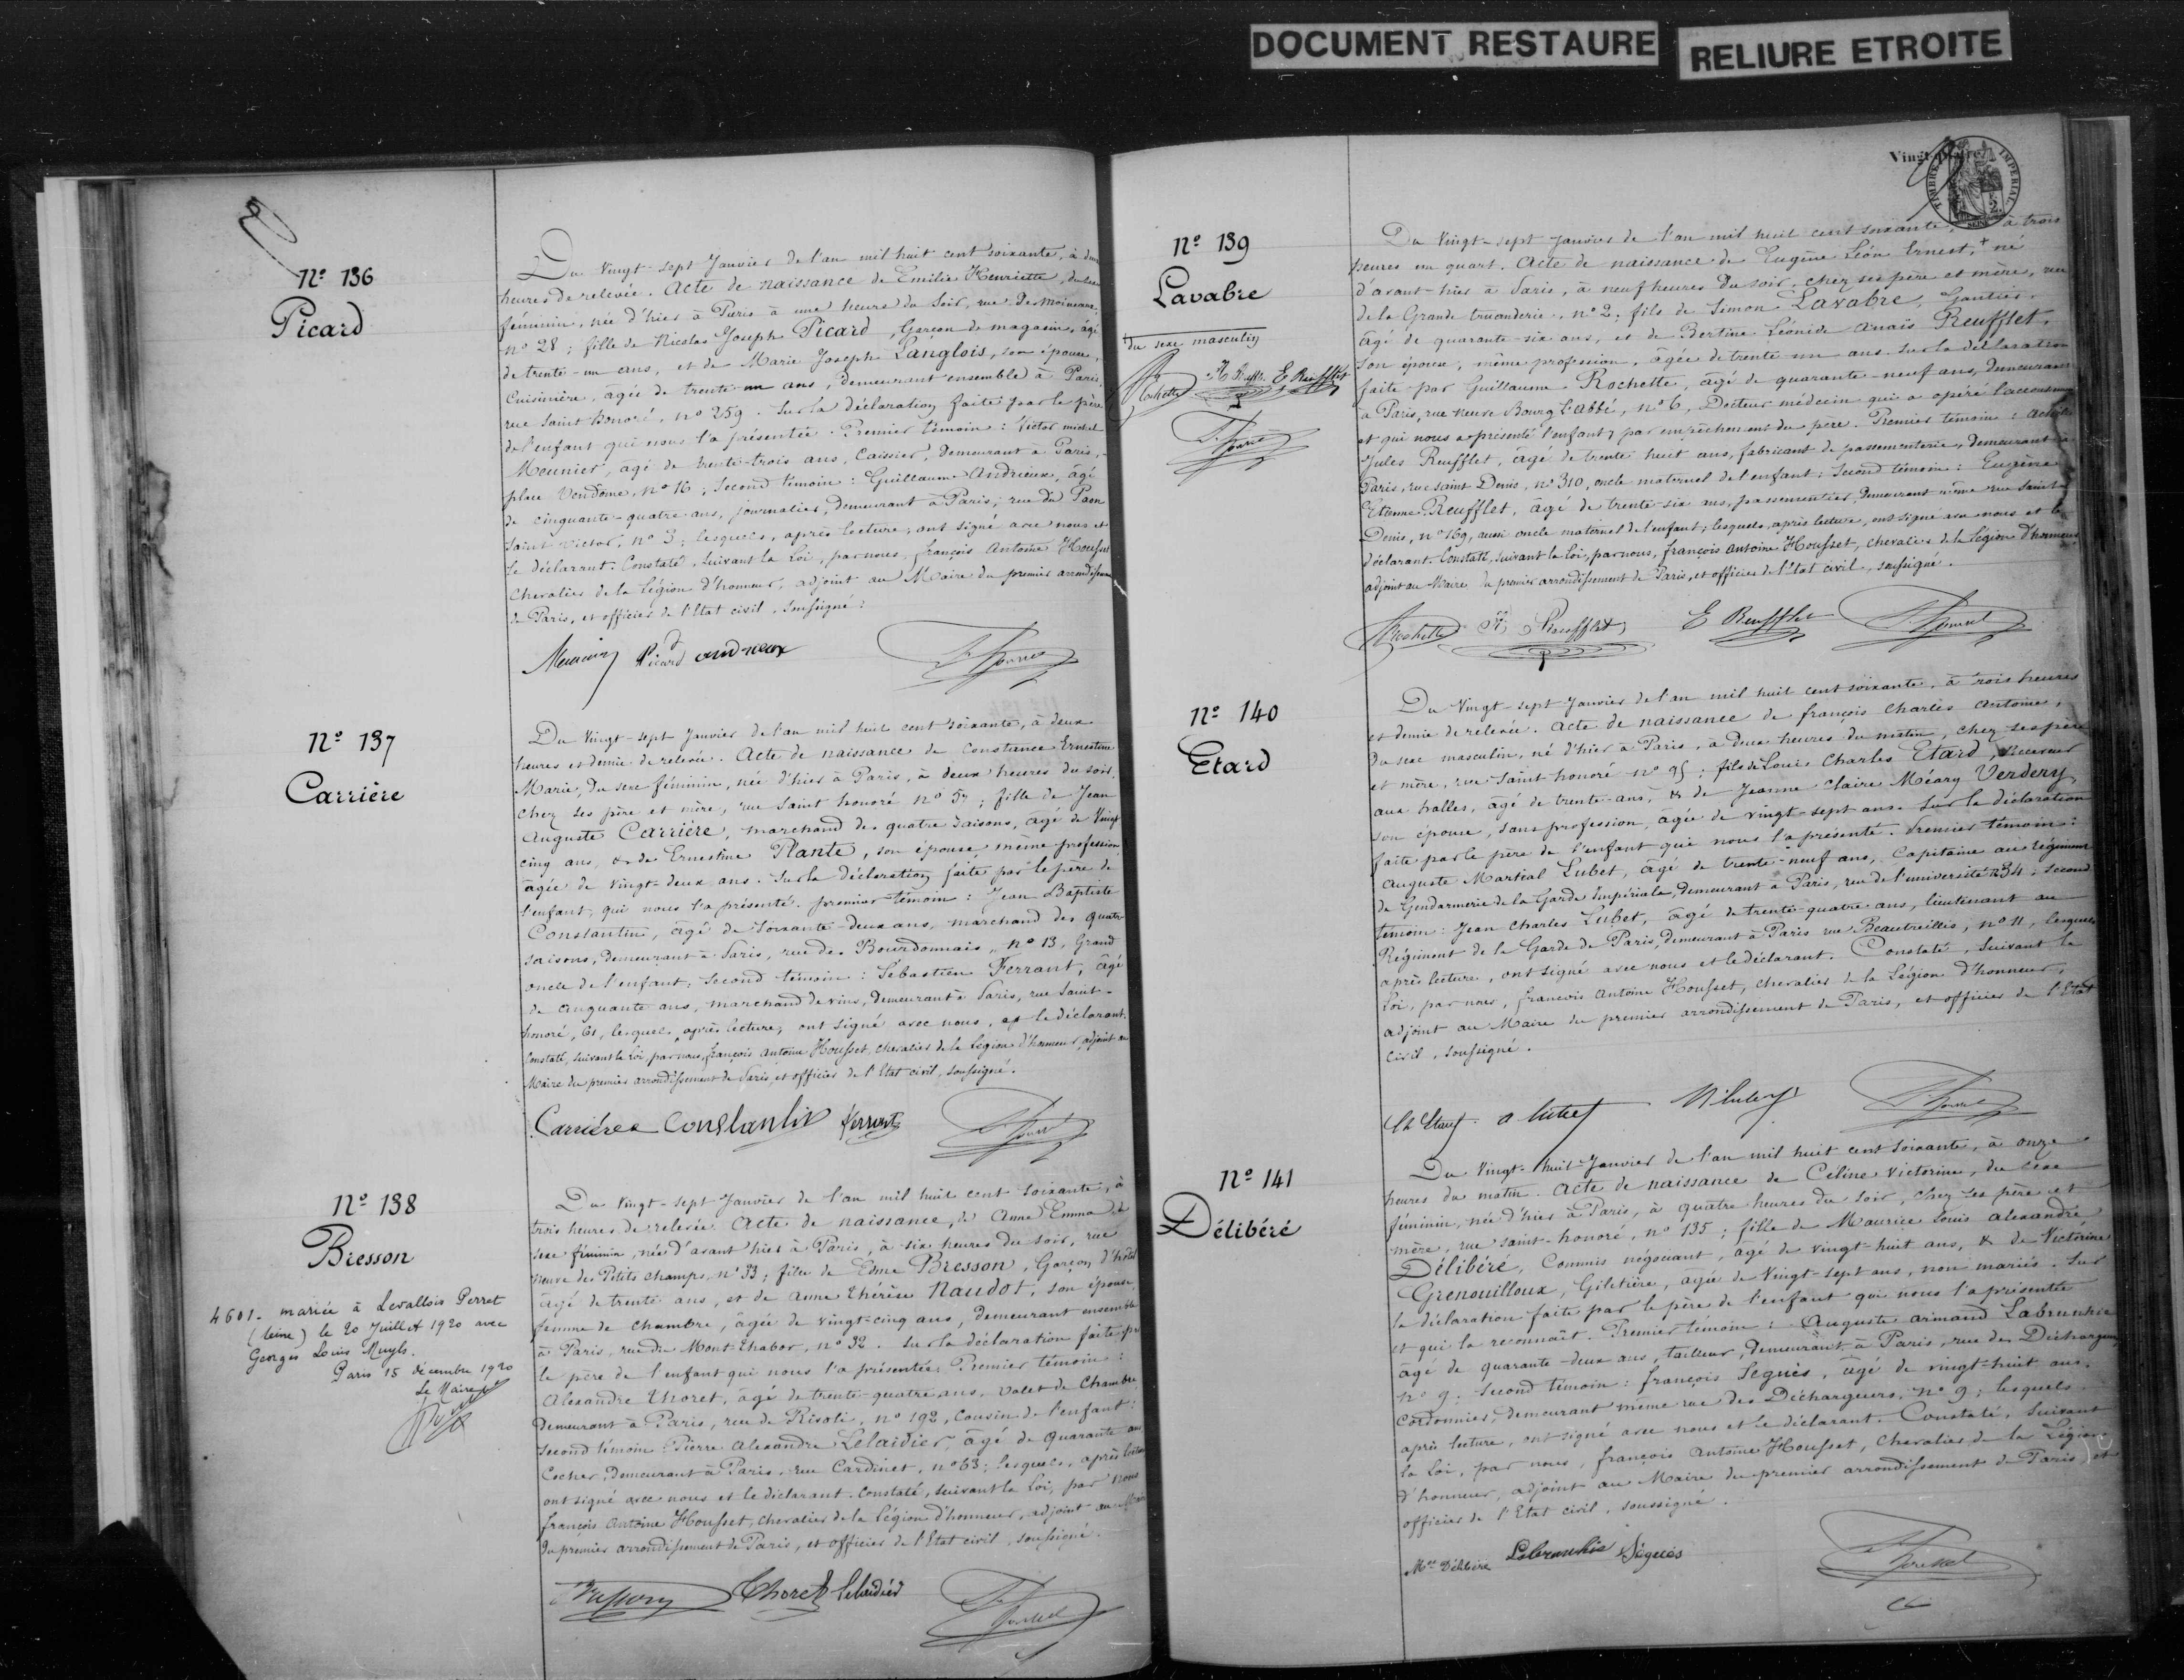 DOCUMENT RESTAURE
RELIURE ETROITE
Nº 136
Picard
Du Vingt-sept Janvier de l'an mil huit cent soixante, à deux
heures de relevée. Acte de naissance de Emilie Henriette, du sexe
féminin, née d'hier à Paris à une heure du Soir, rue des Moineaux,
nº 28; fille de Nicolas Joseph Picard, Garçon de magasin, âgé
de trente-un ans, et de Marie Joseph Langlois, son épouse,
Cuisinière, âgée de trente-un ans, demeurant ensemble à Paris,
rue Saint honoré, nº 259. Sur la déclaration faite par le père
de l'enfant qui nous l'a présentée. Premier témoin: Victor michel
Meunier, âgé de trente-trois ans, Caissier, demeurant à Paris,
place Vendôme, nº 16; Second témoin: Guillaume Andrieux, âgé
de cinquante-quatre ans, journalier, demeurant à Paris, rue du Paon
Saint Victor, nº 3; lesquels, après lecture, ont signé avec nous et
le déclarant. Constaté, Suivant la Loi, par nous, françois Antoine Housset
Chevalier de la Légion d'honneur, adjoint au Maire du premier arrondissement
de Paris, et officier de l'Etat civil, soussigné:
Meunier Picard andrieux
Nº 137
Carrière
Du Vingt-sept Janvier de l'an mil huit cent soixante, à deux
heures et demie de relevée. Acte de naissance de Constance Ernestine
Marie, du sexe féminin, née d'hier à Paris, à deux heures du soir,
chez ses père et mère, rue Saint honoré nº 57; fille de Jean
Auguste Carrière, marchand des quatre saisons, âgé de Vingt
cinq ans, & de Ernestine Plante, son épouse même profession
âgée de vingt-deux ans. Sur la déclaration faite par le père de
l'enfant, qui nous l'a présenté. premier témoin: Jean Baptiste
Constantin, âgé de Soixante-deux ans, marchand des quatre
saisons, demeurant à Paris, rue des Bourdonnais, nº 13, Grand
oncle de l'enfant, Second témoin: Sébastien Ferrant, âgé
de cinquante ans, marchand de vins, demeurant à Paris, rue Saint-
honoré, 61, lesquels, après lecture, ont signé avec nous, et le déclarant.
Constaté, suivant la Loi, par nous, françois Antoine Housset, chevalier de la Légion d'honneur, adjoint au
Maire du premier arrondissement de Paris, et officier de l'Etat civil, soussigné.
Carrière Constantin ferrant
Nº 138
Bresson
4601. mariée à Levallois Perret
(Seine) le 20 Juillet 1920 avec
Georges Louis
Paris 15 décembre 1920
Le Maire
Du Vingt-sept Janvier de l'an mil huit cent soixante, à
trois heures de relevée. Acte de naissance, de Anne Emma du
sexe féminin, née d'avant hier à Paris, à six heures du soir, rue
neuve des Petits champs, nº 33; fille de Edme Bresson, Garçon d'hôtel
âgé de trente ans, et de Anne thérèse Naudot, son épouse
femme de chambre, âgée de vingt-cinq ans, demeurant ensemble
à Paris, rue du Mont-thabor, nº 32. Sur la déclaration faite par
le père de l'enfant qui nous l'a présentée. Premier témoin:
Alexandre thoret, âgé de trente-quatre ans, valet de Chambre
demeurant à Paris, rue de Rivoli, nº 192, Cousin de l'enfant:
Second témoin Pierre Alexandre Lelaidier, âgé de quarante ans
Cocher, demeurant à Paris, rue Cardinet, nº 63; lesquels, après lecture
ont signé avec nous et le déclarant. Constaté, suivant la Loi, par nous
françois Antoine Housset, chevalier de la Légion d'honneur, adjoint au Maire
du premier arrondissement de Paris, et officier de l'Etat civil, soussigné.
Bresson Thoret Lelaidier
Vingt-quatre
TIMBRE IMPERIAL
Nº 139
Lavabre
+ du sexe masculin
Rochette E Reufflet
Du Vingt-sept Janvier de l'an mil huit cent soixante, à trois
heures un quart. Acte de naissance de Eugène Léon Ernest, + né
d'avant-hier à Paris, à neuf heures du soir, chez ses père et mère, rue
de la Grande truanderie, nº 2; fils de Simon Lavabre, Gantier,
âgé de quarante-six ans, et de Bertine Léonide Anaïs Reufflet,
son épouse, même profession, âgée de trente-un ans. Sur la déclaration
faite par Guillaume Rochette, âgé de quarante-neuf ans, demeurant
à Paris, rue neuve Bourg l'Abbé, nº 6, Docteur médecin qui a opéré l'accouchement
et qui nous a présenté l'enfant, par empêchement du père. Premier témoin:
Jules Reufflet, âgé de trente huit ans, fabricant de passementerie, demeurant à
Paris, rue saint Denis, nº 310, oncle maternel de l'enfant; Second témoin: Eugène
Etienne Reufflet, âgé de trente-six ans, passementier, demeurant même rue Saint
Denis, nº 169, aussi oncle maternel de l'enfant; lesquels, après lecture, ont signé avec nous et le
déclarant. Constaté, suivant la Loi, par nous, françois Antoine Housset, chevalier de la Légion d'honneur
adjoint au Maire du premier arrondissement de Paris, et officier de l'Etat civil, soussigné.
Rochette Reufflet E Reufflet
Nº 140
Etard
Du Vingt-sept Janvier de l'an mil huit cent soixante, à trois heures
et demie de relevée. Acte de naissance de françois Charles Antoine,
du sexe masculin, né d'hier à Paris, à deux heures du matin, chez ses père
et mère, rue Saint honoré nº 95; fils de Louis Charles Etard, Receveur
aux halles, âgé de trente-ans, & de Jeanne Claire Méary Verdery
son épouse, sans profession, âgée de vingt-sept ans. Sur la déclaration
faite par le père de l'enfant qui nous l'a présenté. Premier témoin:
Auguste Martial Lubet, âgé de trente-neuf ans, Capitaine au régiment
de Gendarmerie de la Garde Impériale, demeurant à Paris, rue de l'université 34; Second
témoin: Jean Charles Lubet, âgé de trente-quatre ans, lieutenant au
Régiment de la Garde de Paris, demeurant à Paris rue Beautreillis, nº 11, lesquels
après lecture, ont signé avec nous et le déclarant. Constaté, Suivant la
Loi, par nous, françois Antoine Housset, chevalier de la Légion d'honneur,
adjoint au Maire du premier arrondissement de Paris, et officier de l'Etat
civil, soussigné.
Ch Etard. a lubet
Nº 141
Délibéré
Du Vingt-huit Janvier de l'an mil huit cent Soixante, à onze
heures du matin. Acte de naissance de Céline Victorine, du sexe
féminin, née d'hier à Paris, à quatre heures du soir, chez ses père et
mère, rue saint-honoré, nº 135; fille de Maurice Louis Alexandre
Délibéré, Commis négociant, âgé de vingt-huit ans, & de Victorine
Grenouilloux, Giletière, âgée de Vingt-sept ans, non mariés. Sur
la déclaration faite par le père de l'enfant qui nous l'a présentée
et qui la reconnaît. Premier témoin: Auguste armand Labrunhie
âgé de quarante-deux ans, tailleur, demeurant à Paris, rue des Déchargeurs
nº 9. Second témoin: françois Ségués, âgé de vingt-huit ans,
Cordonnier, demeurant même rue des Déchargeurs, nº 9; lesquels
après lecture, ont signé avec nous et le déclarant. Constaté, Suivant
la Loi, par nous, françois Antoine Housset, Chevalier de la Légion
d'honneur, adjoint au Maire du premier arrondissement de Paris, et
officier de l'Etat civil, soussigné.
Mce Délibéré Labrunhie Ségués